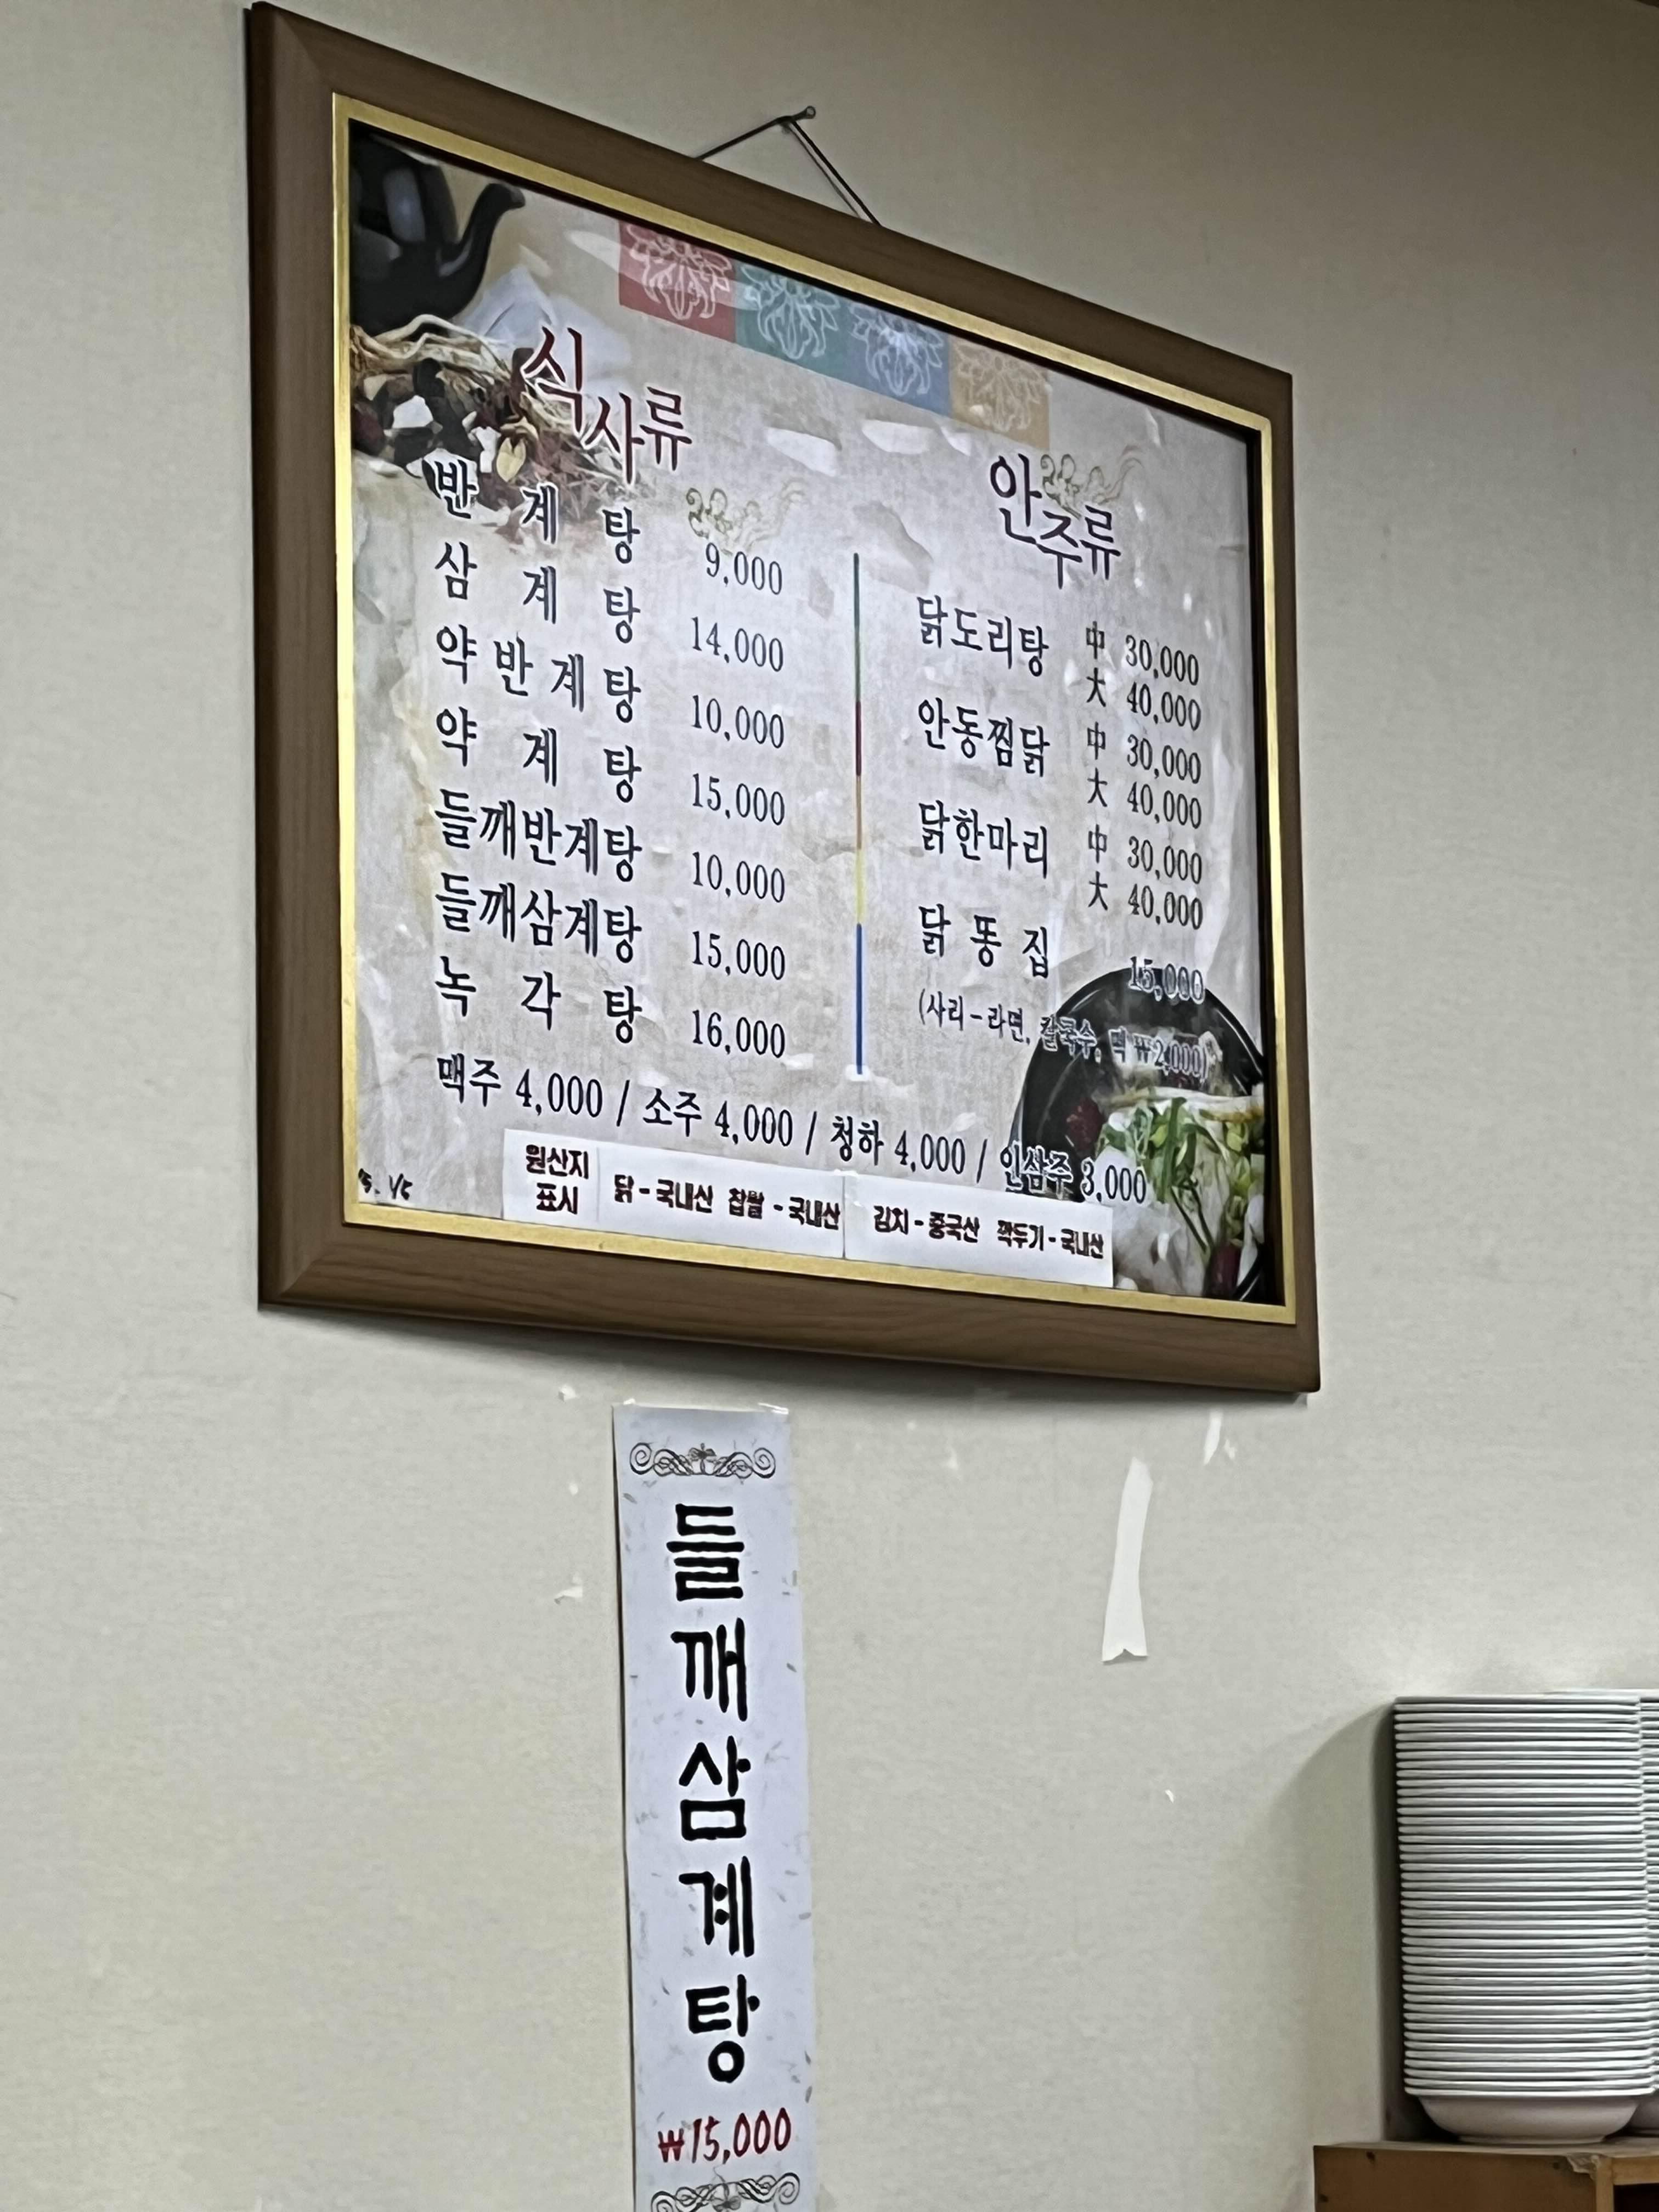 식사류
반계탕 9,000
삼계탕 14,000
약반계탕 10,000
약계탕 15,000
들깨반계탕 10,000
들깨삼계탕 15,000
녹각탕 16,000
안주류
닭도리탕 中 30,000
大 40,000
안동찜닭 中 30,000
大 40,000
닭한마리 中 30,000
大 40,000
닭똥집 15,000
(사리-라면, 칼국수, 떡 ₩2,000)
맥주 4,000 / 소주 4,000 / 청하 4,000 / 인삼주 3,000
원산지
표시
닭-국내산 찹쌀-국내산 김치-중국산 깍두기-국내산
들깨삼계탕
₩15,000